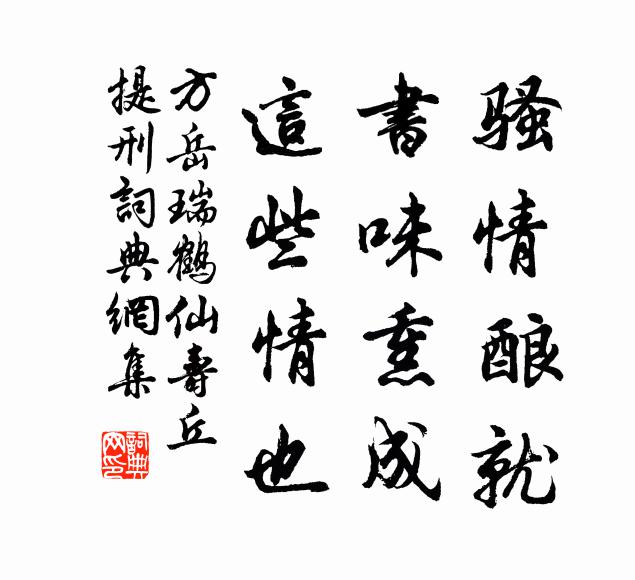 骚情酿就
書味熏成
這些情也
方岳瑞鶴仙壽丘
提刑詞典網集
詞典網印